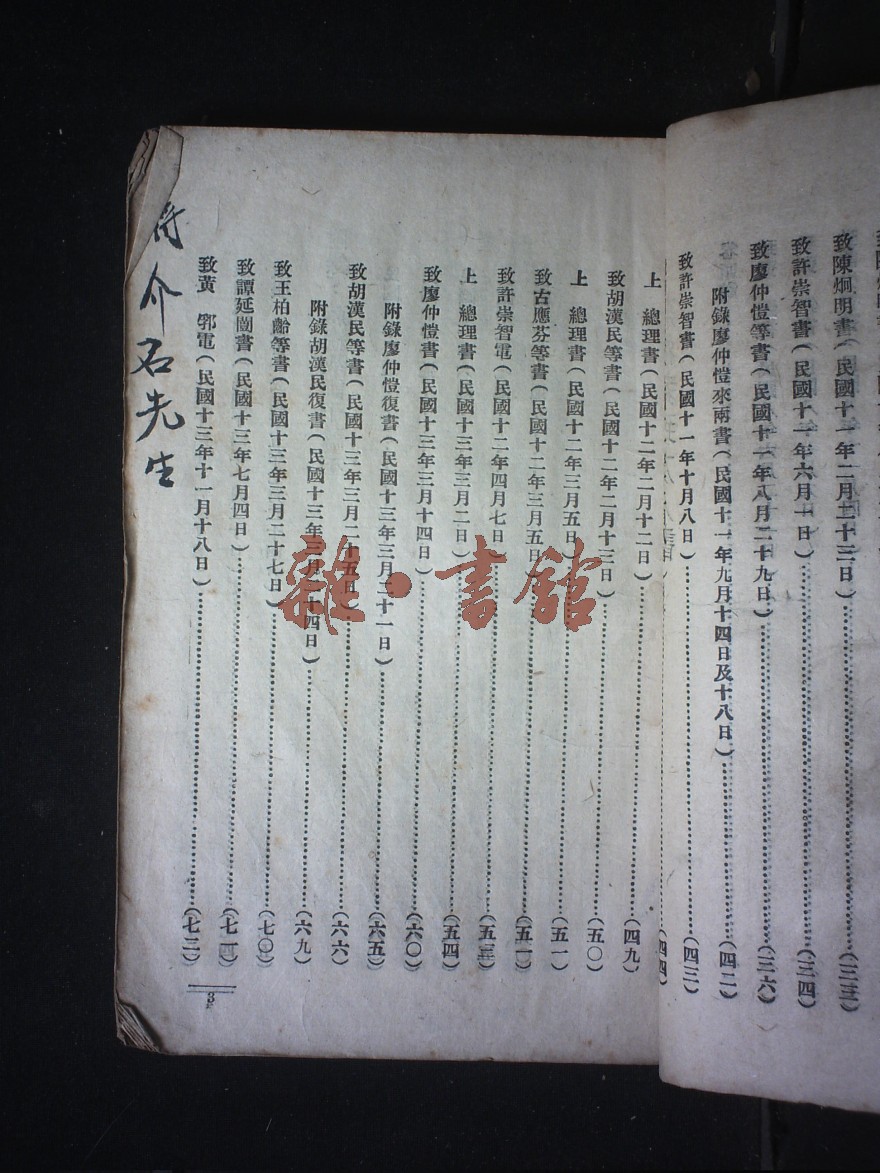 致陳炯明書(民國十一年二月二十三日)………(三三)
致許崇智書(民國十一年六月一日)………(三四)
致廖仲愷等書(民國十一年八月二十九日)………(三六)
附錄廖仲愷來兩書(民國十一年九月十四日及十八日)………(四二)
致許崇智書(民國十一年十月八日)………(四三)
(四四)
上 總理書(民國十二年二月十二日)………(四九)
致胡漢民等書(民國十二年二月十三日)………(五〇)
上 總理書(民國十二年三月五日)………(五一)
致古應芬等書(民國十二年三月五日)………(五一)
致許崇智電(民國十二年四月七日)………(五三)
上 總理書(民國十三年三月二日)………(五四)
致廖仲愷書(民國十三年三月十四日)………(六〇)
附錄廖仲愷復書(民國十三年三月二十一日)………(六五)
致胡漢民等書(民國十三年三月二十五日)………(六六)
附錄胡漢民復書(民國十三年三月 十四日)………(六九)
致王柏齡等書(民國十三年三月二十七日)………(七〇)
致譚延闓書(民國十三年七月四日)………(七一)
致黃 郛電(民國十三年十一月十八日)………(七二)
3
蔣介石先生
雜·書館